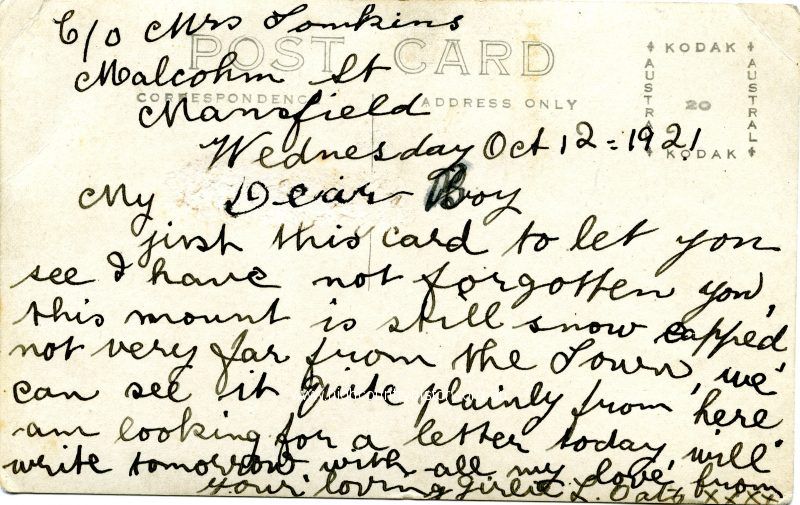 C/o Mrs Tomkins
POST CARD
Malcohm St
CORRESPONDENCE
ADDRESS ONLY
Mansfield
KODAK
AUSTRAL
20
AUSTRAL
KODAK
Wednesday Oct 12 = 1921
My Dear Boy
just this card to let you
see I have not forgotten you,
this mount is still snow capped
not very far from the Town, we
can see it quite plainly from here
am looking for a letter today, will
write tomorrow with all my love, from
your loving Girlie L. Oats xxxx